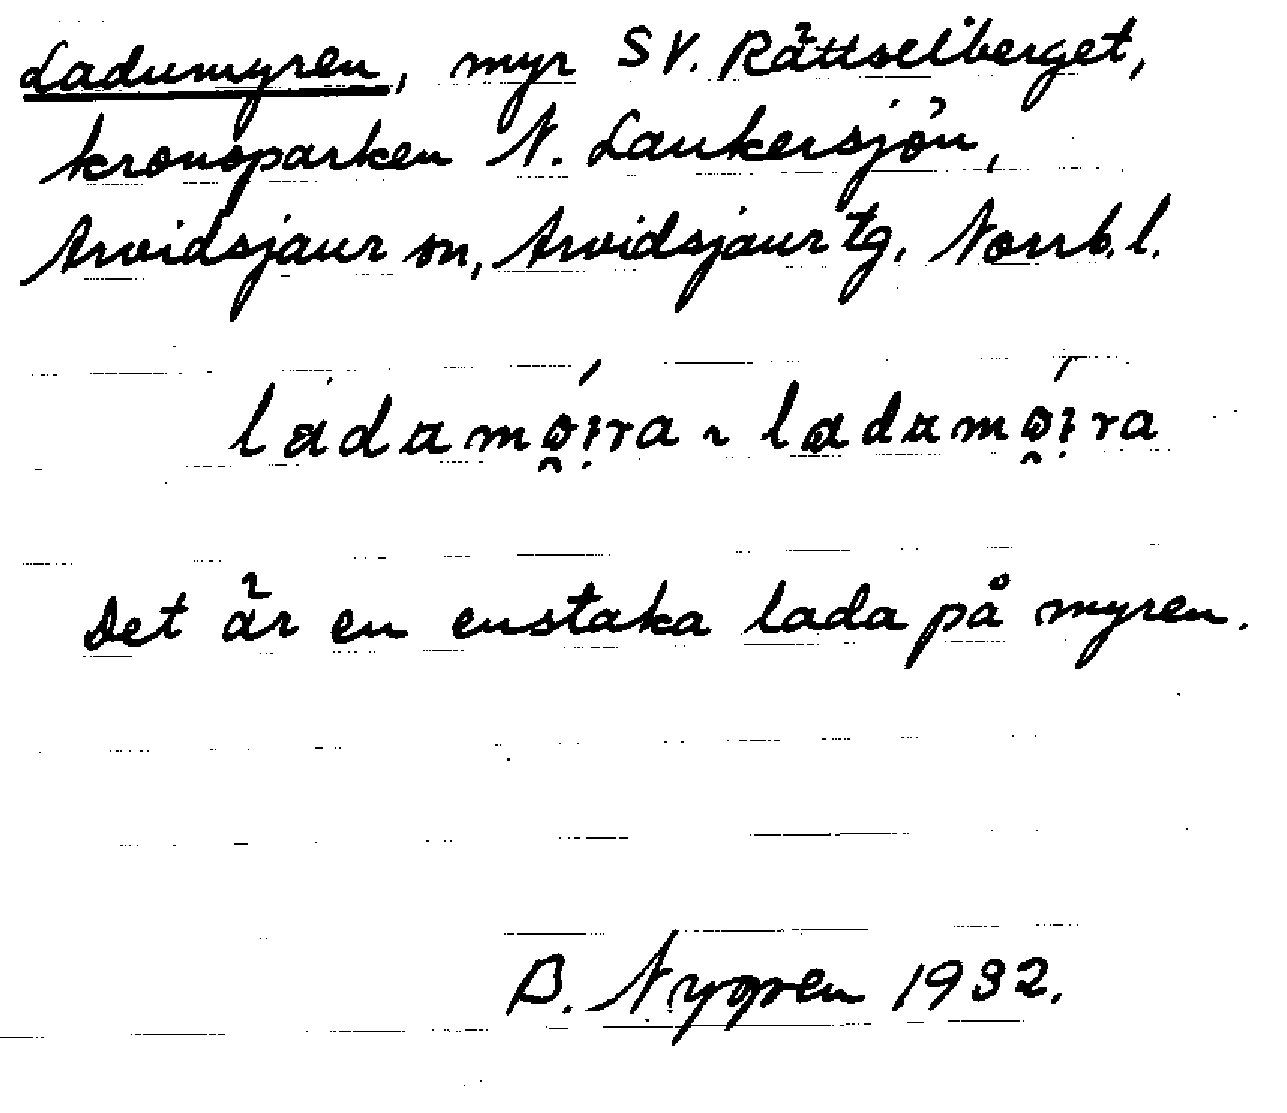 Ladumyren, myr SV. Rättselberget,
kronoparken N. Laukersjön,
Arvidsjaur sn, Arvidsjaur tg. Norrb. l.
ladamöira ~ ladamöira
Det är en enstaka lada på myren.
B. Nygren 1932.